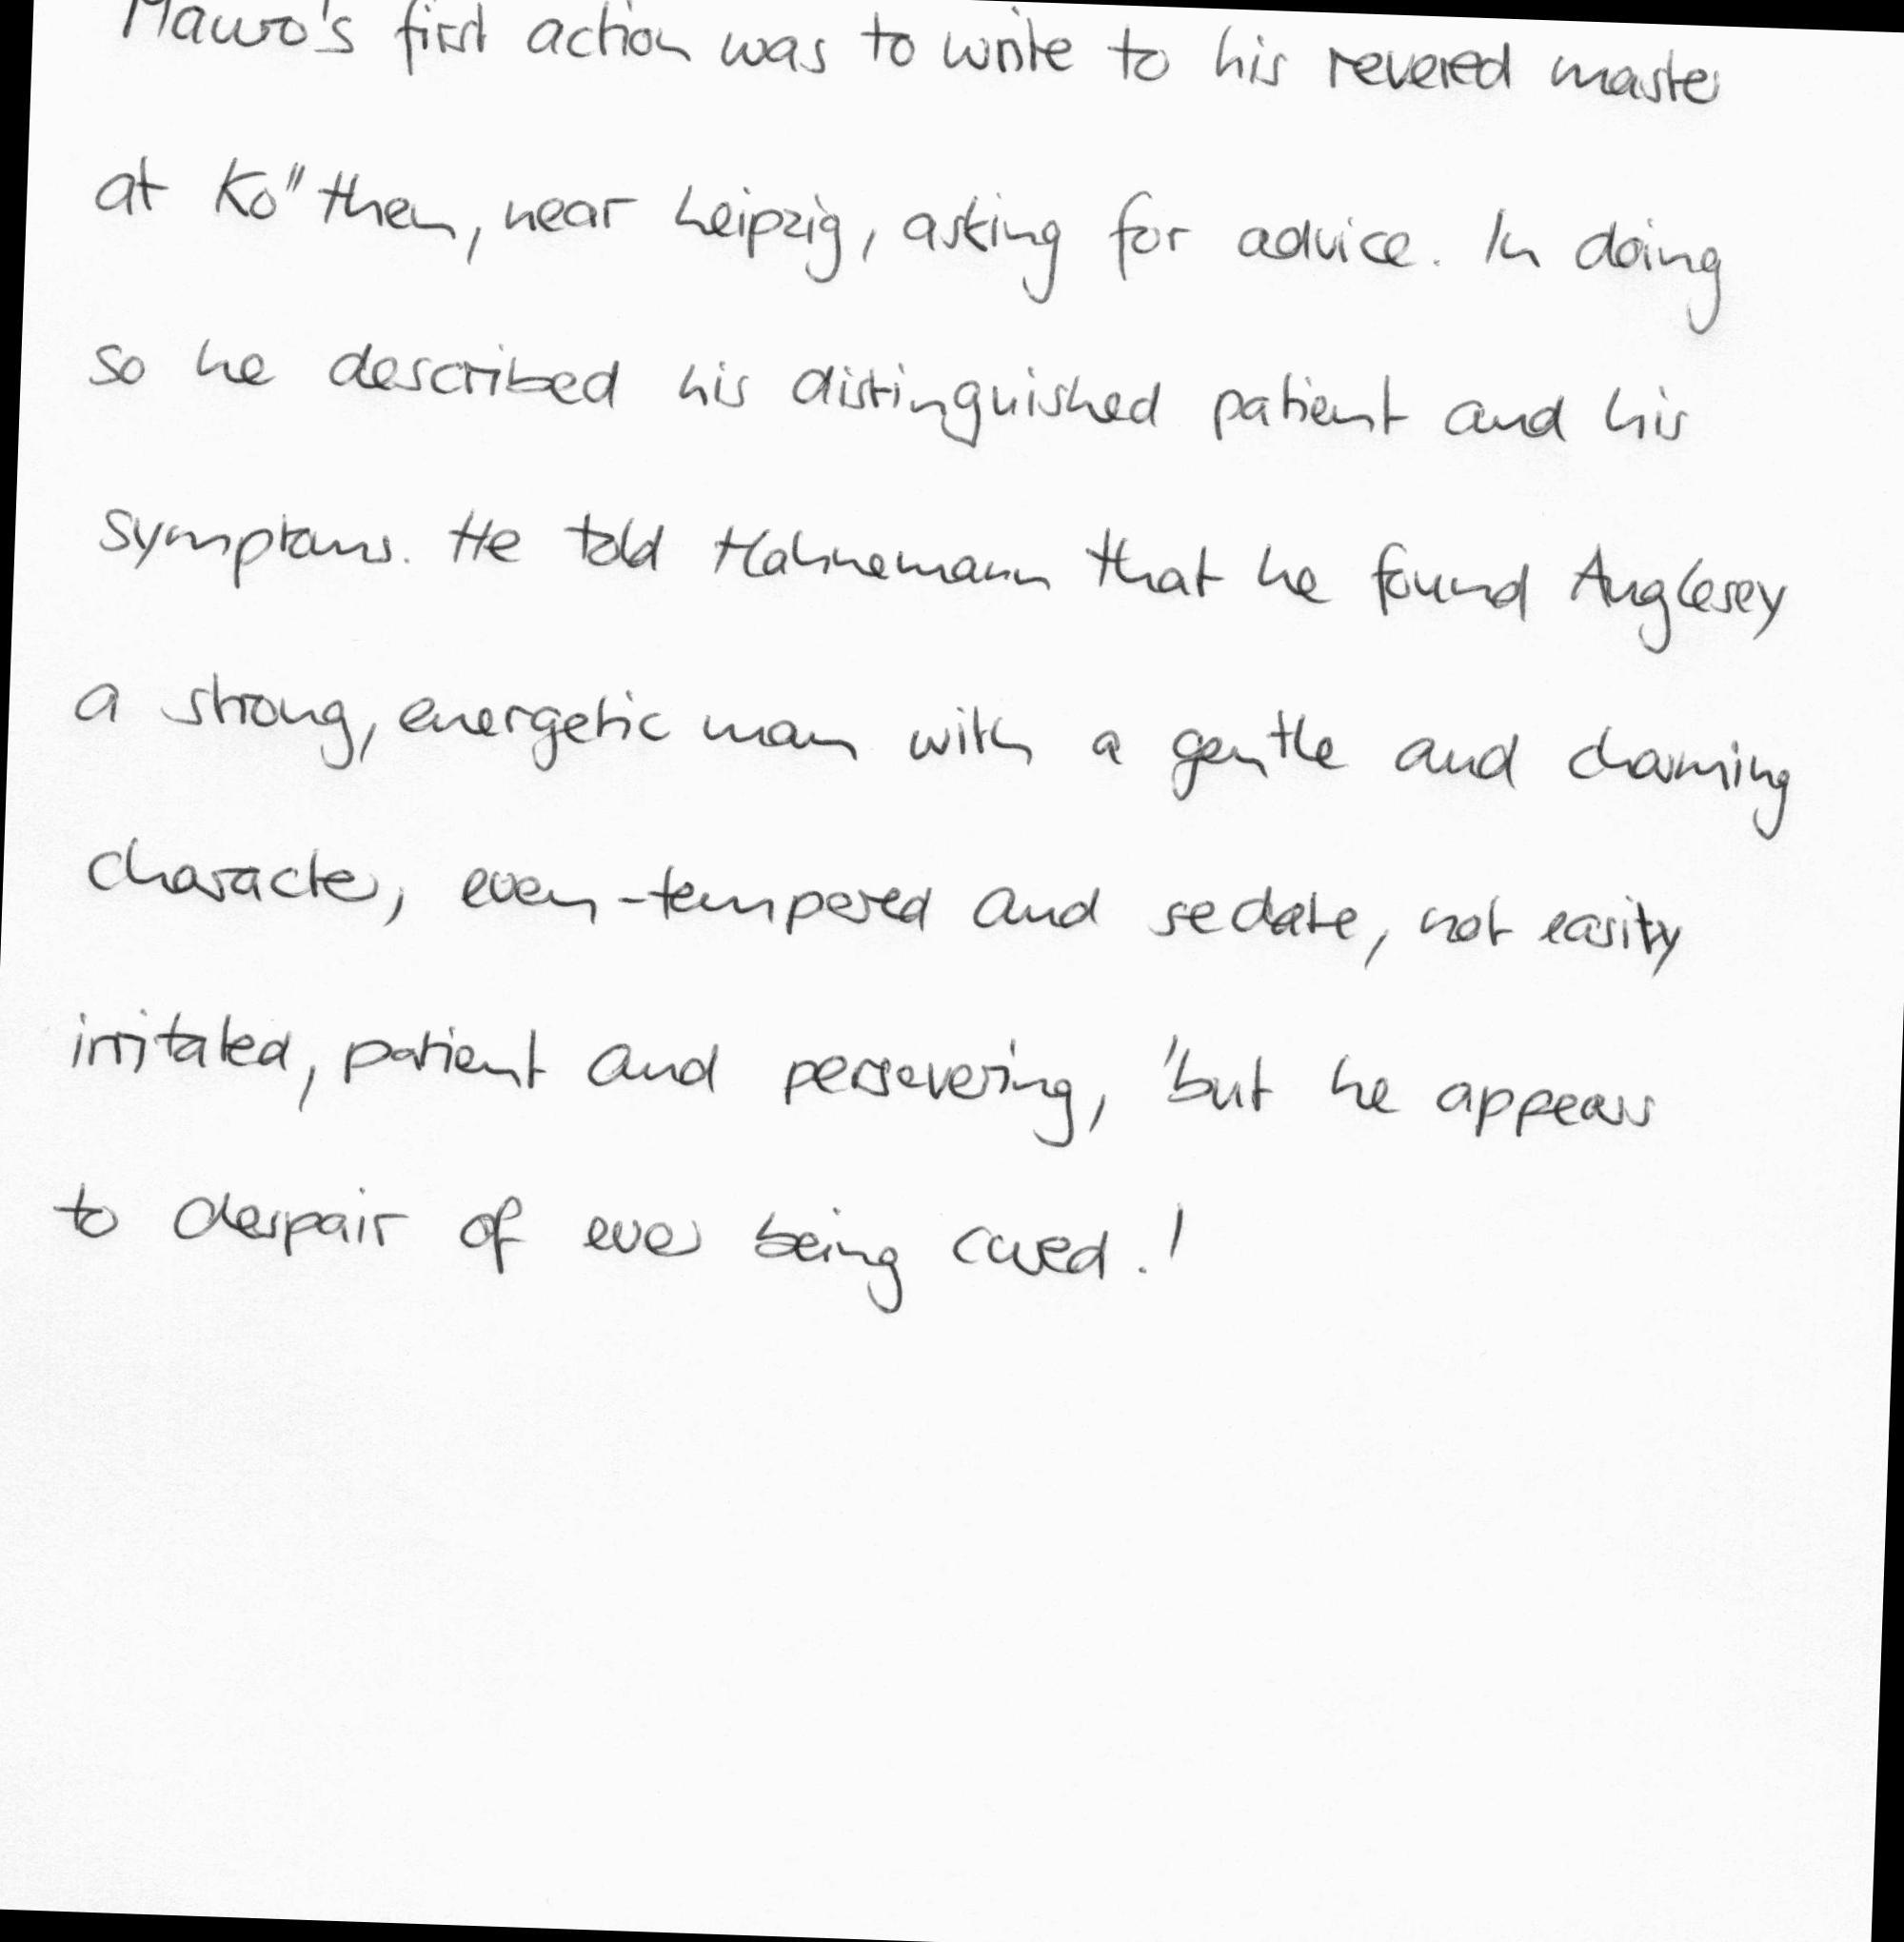 Mauro's first action was to write to his revered master
at Ko"then, near Leipzig, asking for advice. In doing
so he described his distinguished patient and his
symptoms. He told Hahnemann that he found Anglesey
a strong, energetic man with a gentle and charming
character, even-tempered and sedate, not easity
irritated, patient and persevering, 'but he appears
to despair of ever being cured.'